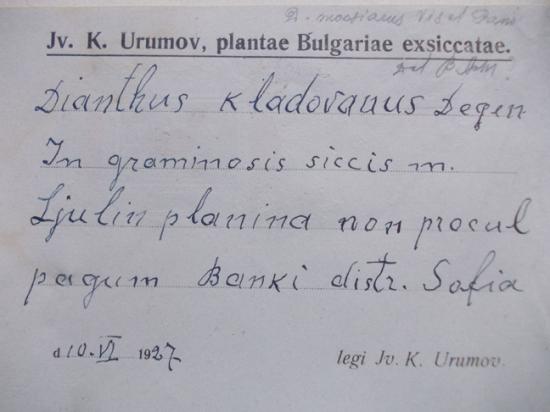 D. moesiacus Vis et Panč
Jv. K. Urumov, plantae Bulgariae exsiccatae.
Det
Dianthus Kladovanus Degen
In graminosis siccis m.
Ljulin planina non procul
pagum Banki distr. Sofia
d 10. VI 1927
legi Jv. K. Urumov.